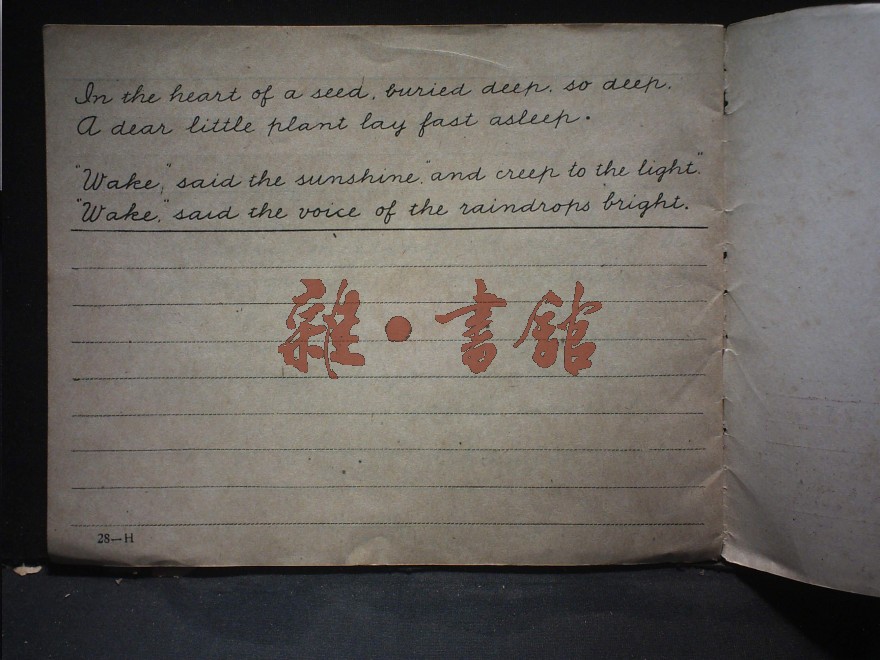 In the heart of a seed, buried deep, so deep,
A dear little plant lay fast asleep.
"Wake," said the sunshine, "and creep to the light."
"Wake," said the voice of the raindrops bright.
雜·書館
28—H